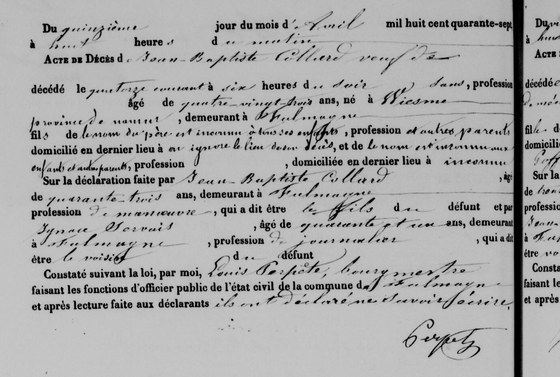 Du quinzième jour du mois d'Avril mil huit cent quarante-sept,
à huit heures du matin
ACTE DE DÉCÈS de Jean Baptiste Collard veuf de
décédé le quatorze courant à six heures du soir dans, profession
âgé de quatre vingt trois ans, né à Wiesme
province de namur, demeurant à Fulmagne
fils de le nom du père est inconnu à tous ses enfants, profession et autres parents
domicilié en dernier lieu à on ignore le lieu de son décès, et de le nom est inconnu aux
enfants et autres parents, profession , domiciliée en dernier lieu à inconnu
Sur la déclaration faite par Jean Baptiste Collard , âgé
de quarante trois ans, demeurant à Fulmagne
profession de manœuvre, qui a dit être le fils du défunt et par
Ignace Servais , âgé de quarante et un ans, demeurant
à Fulmagne , profession de journalier , qui a dit
être le voisin du défunt
Constaté suivant la loi, par moi, Louis Perpête, bourgmestre
faisant les fonctions d'officier public de l'état civil de la commune de Fulmagne
et après lecture faite aux déclarants ils ont déclaré ne savoir écrire.